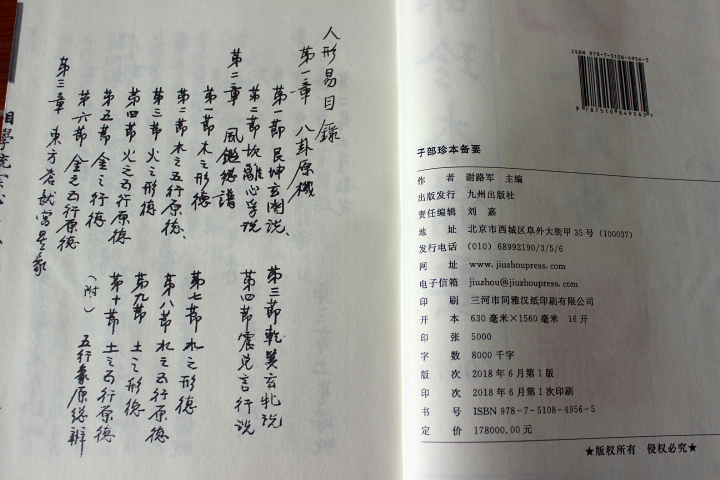 人形易目錄
第一章 八卦原機
第一節 艮坤玄関説、
第二節 坎離心字説
第三節 乾巽玄牝説
第四節 震兌言行説
第二章 風鑑總譜
第一節 木之形德
第二節 木之五行原德、
第三節 火之形德
第四節 火之五行原德
第五節 金之行德
第六節 金之五行原德
第七節 水之形德
第八節 水之五行原德
第九節 土之形德
第十節 土之五行原德
(附) 五行象原總辨
第三章 東方蒼
ISBN 978-7-5108-4956-5
9 787510 849565 >
子部珍本备要
作 者 谢路军 主编
出版发行 九州出版社
责任编辑 刘 嘉
地 址 北京市西城区阜外大街甲 35 号（100037）
发行电话 (010) 68992190/3/5/6
网 址 www.jiuzhoupress.com
电子信箱 jiuzhou@jiuzhoupress.com
印 刷 三河市同雅汉纸印刷有限公司
开 本 630 毫米×1560 毫米 16 开
印 张 5000
字 数 8000 千字
版 次 2018 年 6 月第 1 版
印 次 2018 年 6 月第 1 次印刷
书 号 ISBN 978-7-5108-4956-5
定 价 178000.00 元
★版权所有 侵权必究★